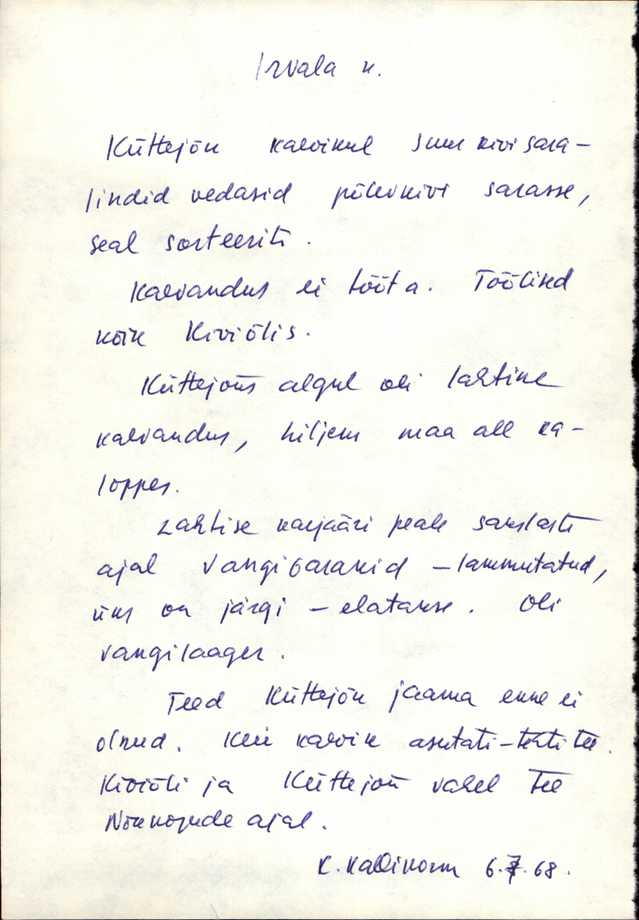 Irvala k.
Küttejõu kaevikul suur kivisara –
lindid vedasid põlevkivi sarasse,
seal sorteeriti.
Kaevandus ei tööta. Töölised
kõik Kiviõlis.
Küttejõus algul oli lahtine
kaevandus, hiljem maa all ka –
loppes.
Lahtise karjääri peale
ajal vangibarakid – lammutatud,
üks on järgi – elatakse. Oli
vangilaager.
Teed Küttejõu jaama enne ei
olnud. Kui kaevik asutati – tehti tee.
Kiviõli ja Küttejõu vahel tee
Nõukogude ajal.
K. Kallikorm 6.7.68.